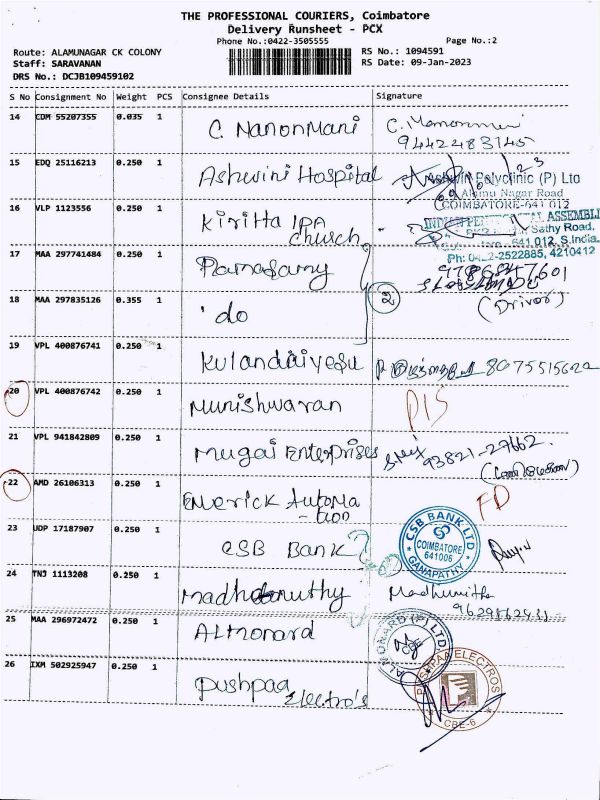 THE PROFESSIONAL COURIERS, Coimbatore
Delivery Runsheet - PCX
Phone No.:0422-3505555
Page No.:2
Route: ALAMUNAGAR CK COLONY
RS No.: 1094591
Staff: SARAVANAN
RS Date: 09-Jan-2023
DRS No.: DCJB109459102
S No Consignment No Weight PCS Consignee Details Signature
14 CDM 55207355 0.035 1 C. Nanonmani C.
9442483145
15 EDQ 25116213 0.250 1 Ashwini Hospital
Polyclinic (P) Ltd
Alamu Nagar Road
COIMBATORE-641 012
16 VLP 1123556 0.250 1 Kiritta IPA
church
ASSEMBLI
Sathy Road,
641 012, S.India.
Ph: 2522885, 4210412
17 MAA 297741484 0.250 1 Ramasamy
9786847601
18 MAA 297835126 0.355 1 'do
2
(Driver)
19 VPL 400876741 0.250 1 Kulandaiyesu
20 VPL 400876742 0.250 1 Munishwaran
21 VPL 941842809 0.250 1 Mugai Enterprises
93821-27662.
22 AMD 26106313 0.250 1 Emerick Automa
-tion
FD
23 UDP 17187907 0.250 1 CSB Bank
CSB BANK LTD
COIMBATORE
641006
GANAPATHY
24 TNJ 1113208 0.250 1
Madhumitha
25 MAA 296972472 0.250 1 Almonard
ALMONARD (P) LTD
CBE
26 IXM 502925947 0.250 1 Pushpaa
Electro's
PUSHPAA ELECTROS
CBE-6